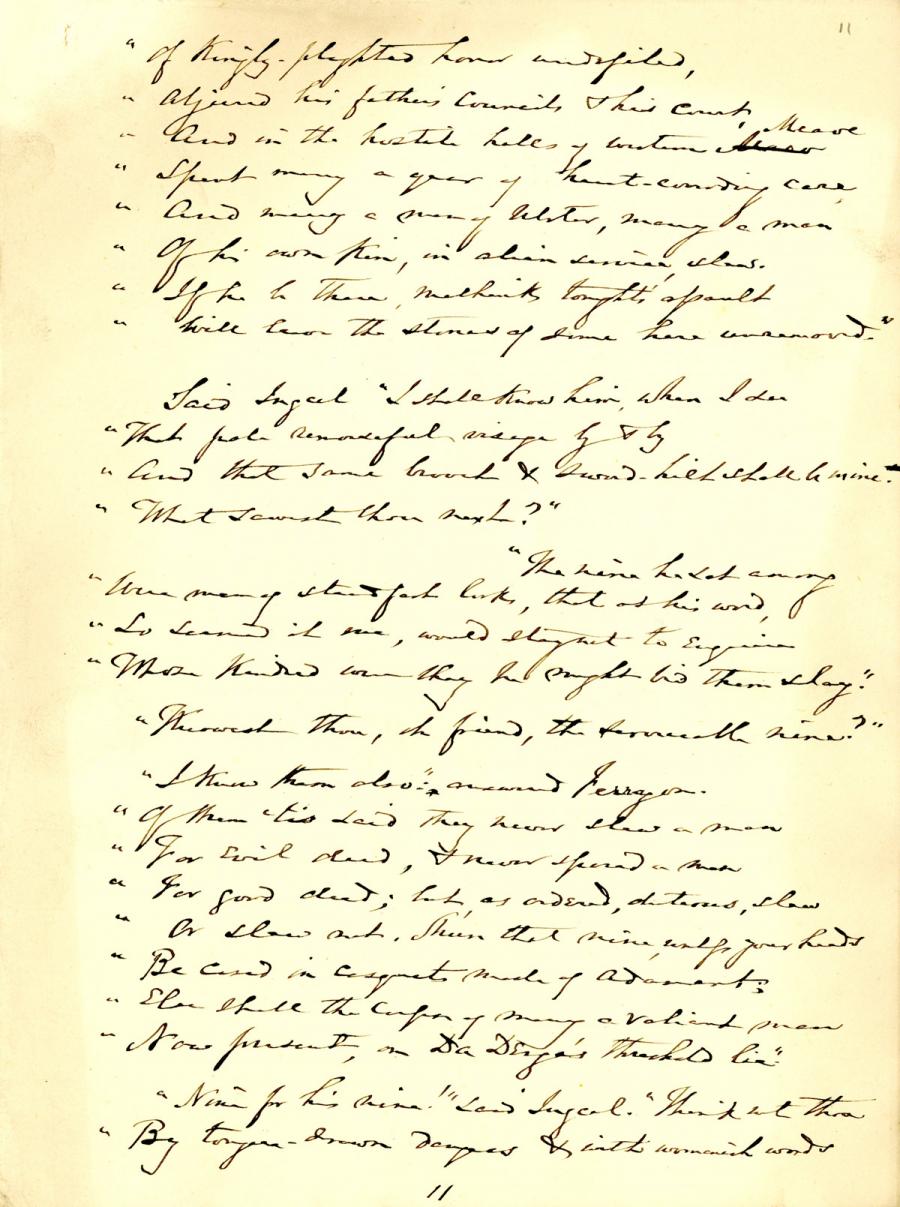 11
" Of Kingly-plighted honor undefiled,
" Abjured his father's Councils & his court,
" And in the hostile halls of western Meave
" Spent many a year of heart-corroding care,
" And many a man of Ulster, many a man
" Of his own Kin, in alien service, slew.
" If he be there, methinks tonight's assault
" Will leave the stones of some here unremoved."
Said Ingcel "I shall Know him, when I see
" That pale remorseful visage by & by
" And that same brooch & sword-hilt shall be mine."
" What sawest thou next?"
" The nine he sat among
" Were men of steadfast looks, that at his word,
" So seemed it me, would stay not to Enquire
" Whose Kindred were they he might bid them slay."
" Knowest thou, oh friend, the serviceable nine?"
" I Know them also" answered Ferragon.
" Of them 'tis said they never slew a man
" For Evil deed, & never spared a man
" For good deed; but, as ordered, duteous, slew
" Or slew not. Shun that nine, unless your heads
" Be cased in casquets made of Adamant;
" Else shall the Corpse of many a valiant man
" Now present, on Da Derga's threshold lie."
" Nine for his nine!" said Ingcel. "Think not thou
" By tongue-drawn dangers & with womanish words
11